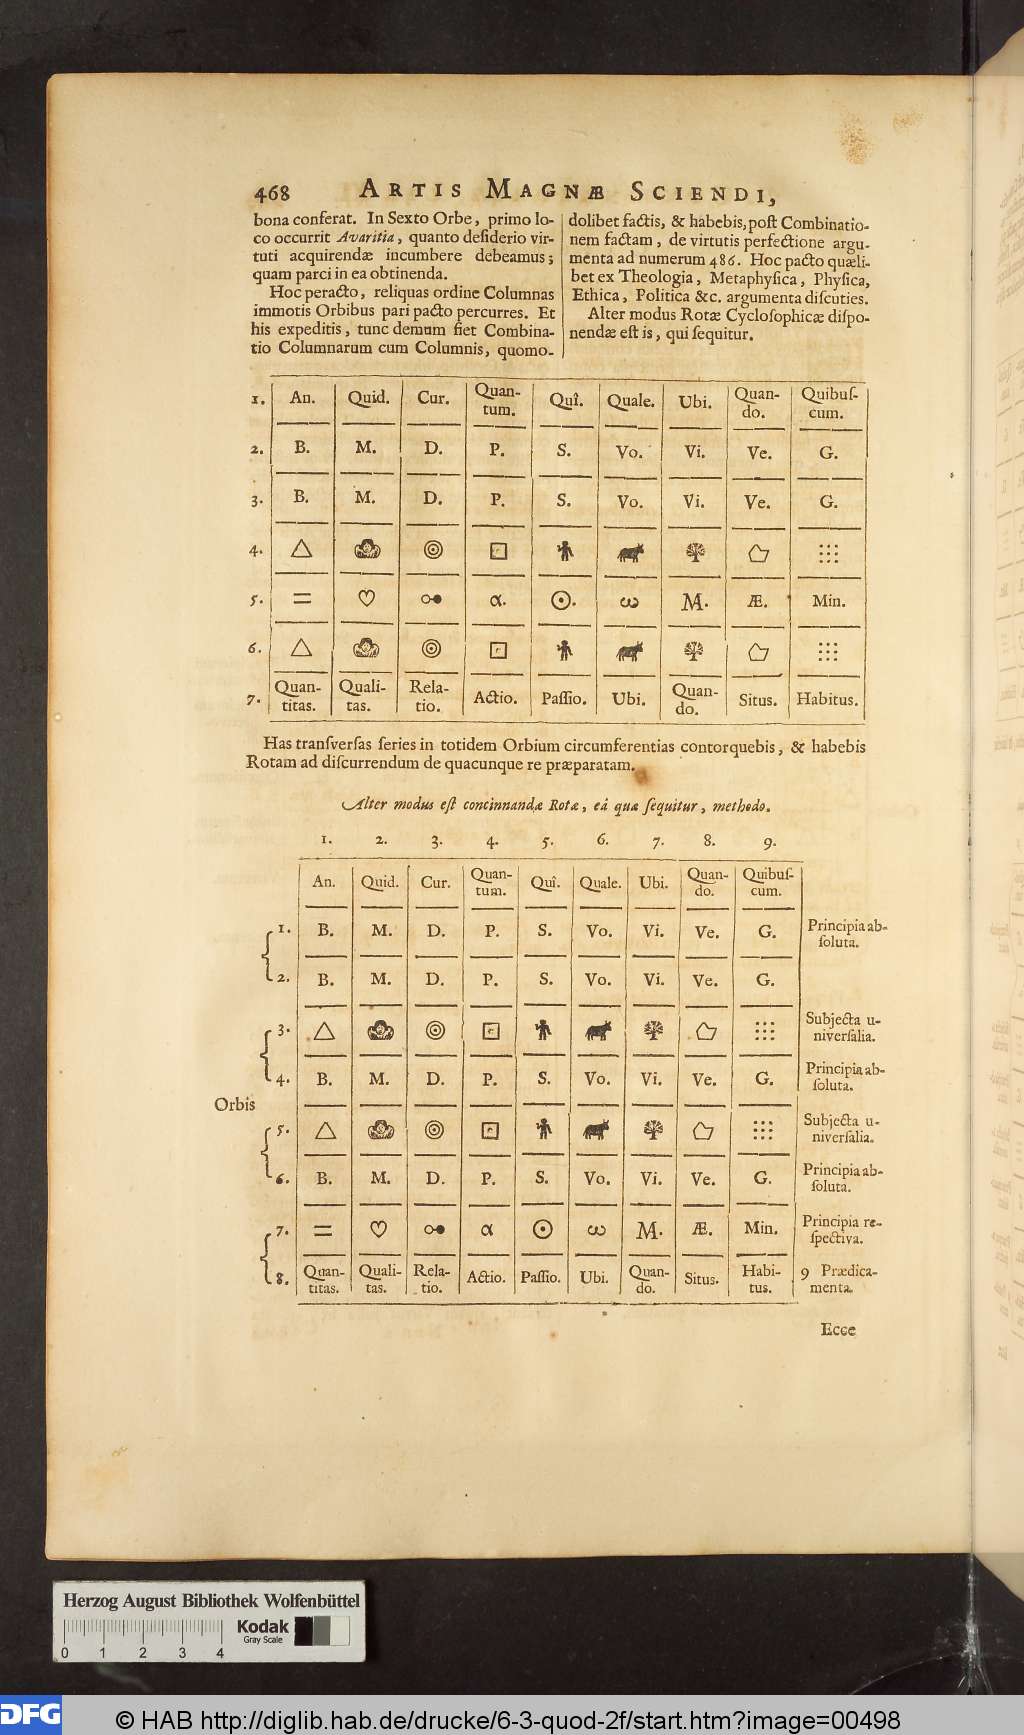 468 ARTIS MAGNÆ SCIENDI,
bona conferat. In Sexto Orbe, primo lo-
co occurrit Avaritia, quanto desiderio vir-
tuti acquirendæ incumbere debeamus;
quam parci in ea obtinenda.
Hoc peracto, reliquas ordine Columnas
immotis Orbibus pari pacto percurres. Et
his expeditis, tunc demum fiet Combina-
tio Columnarum cum Columnis, quomo-
dolibet factis, & habebis, post Combinatio-
nem factam, de virtutis perfectione argu-
menta ad numerum 486. Hoc pacto quæli-
bet ex Theologia, Metaphysica, Physica,
Ethica, Politica &c. argumenta discuties.
Alter modus Rotæ Cyclosophicæ dispo-
nendæ est is, qui sequitur.
1. An. Quid. Cur. Quan-tum. Quî. Quale. Ubi. Quan-do. Quibus-cum.
2. B. M. D. P. S. Vo. Vi. Ve. G.
3. B. M. D. P. S. Vo. Vi. Ve. G.
4.
5. = α. ω M. Æ. Min.
6.
7. Quan-titas. Quali-tas. Rela-tio. Actio. Passio. Ubi. Quan-do. Situs. Habitus.
Has transversas series in totidem Orbium circumferentias contorquebis, & habebis
Rotam ad discurrendum de quacunque re præparatam.
Alter modus est concinnandæ Rotæ, eâ quæ sequitur, methodo.
1. 2. 3. 4. 5. 6. 7. 8. 9.
An. Quid. Cur. Quan-tum. Quî. Quale. Ubi. Quan-do. Quibus-cum.
1. B. M. D. P. S. Vo. Vi. Ve. G. Principia ab-soluta.
2. B. M. D. P. S. Vo. Vi. Ve. G.
3. Subjecta u-niversalia.
4. B. M. D. P. S. Vo. Vi. Ve. G. Principia ab-soluta.
Orbis
5. Subjecta u-niversalia.
6. B. M. D. P. S. Vo. Vi. Ve. G. Principia ab-soluta.
7. = α ω M. Æ. Min. Principia re-spectiva.
8. Quan-titas. Quali-tas. Rela-tio. Actio. Passio. Ubi. Quan-do. Situs. Habi-tus. 9 Prædica-menta.
Ecce
Herzog August Bibliothek Wolfenbüttel
Kodak
Gray Scale
0 1 2 3 4
DFG
© HAB http://diglib.hab.de/drucke/6-3-quod-2f/start.htm?image=00498